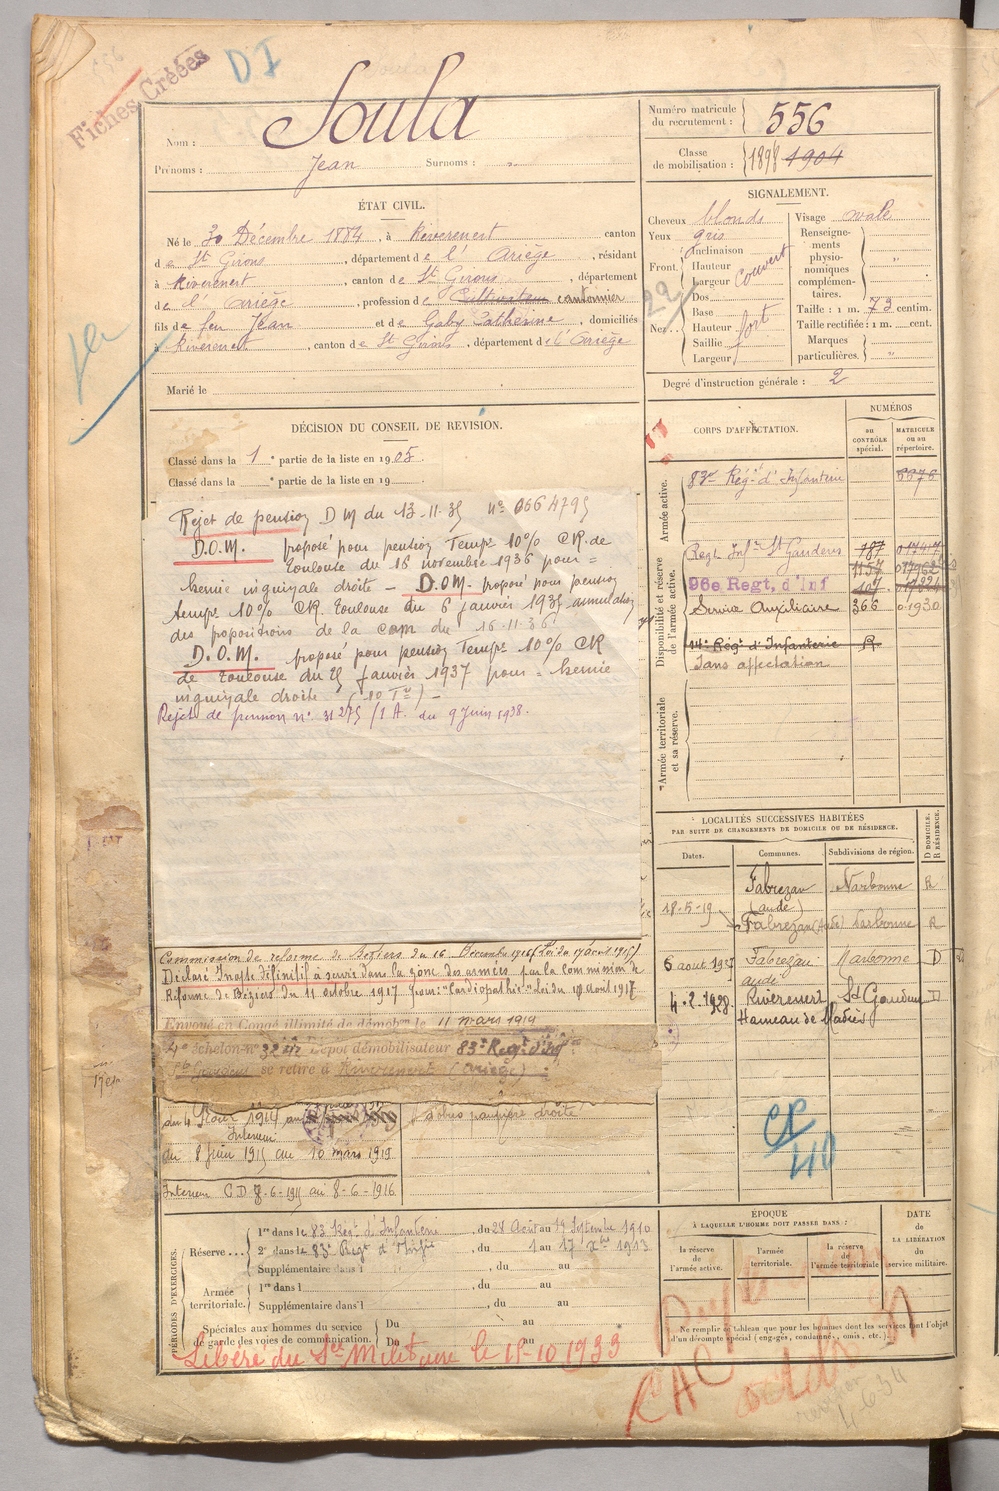 Fiches Créées
D I
Nom : Soula
Prénoms : Jean Surnoms : "
Numéro matricule du recrutement : 556
Classe de mobilisation : 1898 1904
ÉTAT CIVIL.
Né le 30 Décembre 1884, à Rivèrenert canton
de St Girons, département de l'Ariège, résidant
à Rivèrenert, canton de St Girons, département
de l'Ariège, profession de Cultivateur cantonnier
fils de feu Jean et de Gaby Catherine, domiciliés
à Rivèrenert, canton de St Girons, département de l'Ariège
Marié le
SIGNALEMENT.
Cheveux blonds
Yeux gris
Front Inclinaison
Hauteur
Largeur couvert
Nez Dos
Base
Hauteur fort
Saillie
Largeur
22
Visage ovale
Renseignements physionomiques complémentaires. "
Taille : 1 m. 73 centim.
Taille rectifiée : 1 m. cent.
Marques particulières. "
Degré d'instruction générale : 2
DÉCISION DU CONSEIL DE RÉVISION.
Classé dans la 1e partie de la liste en 1905.
Classé dans la e partie de la liste en 19
Rejet de pension D M du 13-11-35
D.O.M. proposé pour pension Tempre 10% CR de
Toulouse du 16 novembre 1936 pour =
hernie inguinale droite – D.O.M. proposé pour pension
tempre 10% CR Toulouse du 6 janvier annulation
des propositions de la com du 16-11-36
D.O.M. proposé pour pension Tempre 10% CR
de Toulouse du 25 Janvier 1937 pour = hernie
inguinale droite
Rejet de pension n° 31275 /1 A. du 9 Juin 1938.
Commission de réforme de Béziers du 16 Décembre 1916 (Loi du 17 août 1915)
Déclaré Inapte définitif à servir dans la zone des armées par la Commission de
Réforme de Béziers du 11 octobre 1917 pour : "Cardiopathie" Loi du août 1917
Envoyé en Congé illimité de démobon le 11 mars 1919
4e échelon n° Dépôt démobilisateur 83e Regt d'Inf
St Gaudens se retire à Rivèrenert (Ariège)
du 4 Août 1914 au
Intérieur
du 8 Juin 1915 au 10 mars 1919
Intérieur C D 8-6-1915 au 8-6-1916
d'obus paupière droite
CORPS D'AFFECTATION.
NUMÉROS
au CONTRÔLE SPÉCIAL.
MATRICULE ou au répertoire.
Armée active.
83e Régt d'Infanterie
Disponibilité et réserve de l'armée active.
Regt Infie St Gaudens 787
1157
96e Regt, d'Inf 107
Service Auxiliaire 366 01930
14e Régt d'Infanterie R
Sans affectation
Armée territoriale et sa réserve.
LOCALITÉS SUCCESSIVES HABITÉES
PAR SUITE DE CHANGEMENTS DE DOMICILE OU DE RÉSIDENCE.
Dates. Communes. Subdivisions de région. D DOMICILE. R RÉSIDENCE.
Fabrezan (aude) Narbonne R
18-5-19 Fabrezan (Aude) Narbonne R
6 aout Fabrezan aude Narbonne D
4-2-1928. Rivèrenert St Gaudens D
Hameau de
CR
40
PÉRIODES D'EXERCICES.
Réserve... 1re dans le 83 Régt d'Infanterie, du 28 Août au Septembre 1910
2e dans le 83e Régt d'Infie, du 1 au 17 xbre 1913
Supplémentaire dans l , du au
Armée territoriale. 1re dans l , du au
Supplémentaire dans l , du au
Spéciales aux hommes du service de garde des voies de communication. Du au
Du au
Libéré du Sce Militaire le 15-10 1933
ÉPOQUE
À LAQUELLE L'HOMME DOIT PASSER DANS :
la réserve de l'armée active.
l'armée territoriale.
la réserve de l'armée territoriale
DATE de LA LIBÉRATION du service militaire.
Ne remplir ce tableau que pour les hommes dont les services font l'objet d'un décompte spécial (engagés, condamné, omis, etc.)
RAC